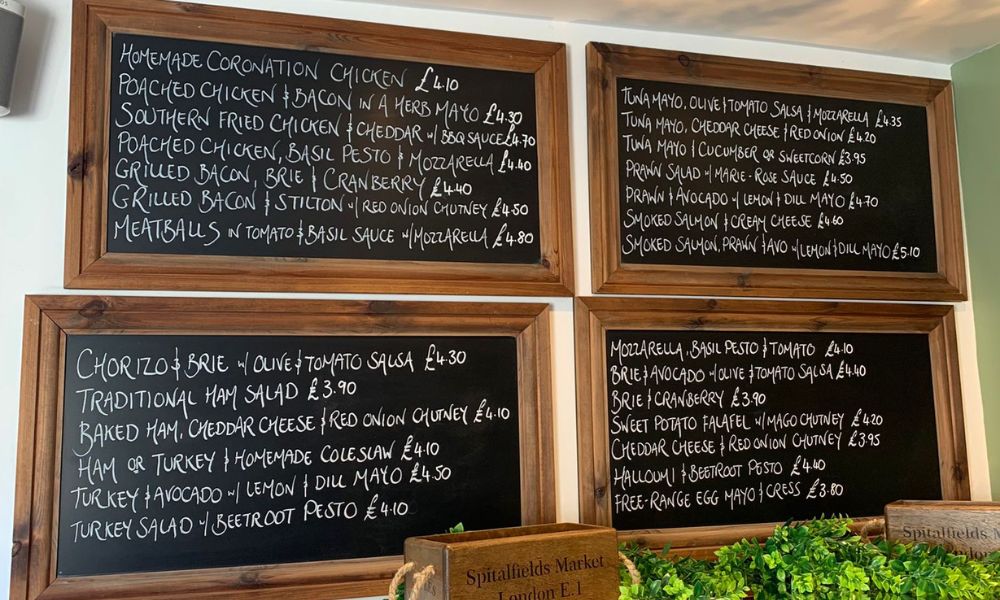 HOMEMADE CORONATION CHICKEN £4.10
POACHED CHICKEN & BACON IN A HERB MAYO £4.30
SOUTHERN FRIED CHICKEN & CHEDDAR w/ BBQ SAUCE £4.70
POACHED CHICKEN, BASIL PESTO & MOZZARELLA £4.40
GRILLED BACON, BRIE & CRANBERRY £4.40
GRILLED BACON & STILTON w/ RED ONION CHUTNEY £4.50
MEATBALLS IN TOMATO & BASIL SAUCE w/ MOZZARELLA £4.80
TUNA MAYO, OLIVE & TOMATO SALSA & MOZZARELLA £4.35
TUNA MAYO, CHEDDAR CHEESE & RED ONION £4.20
TUNA MAYO & CUCUMBER OR SWEETCORN £3.95
PRAWN SALAD w/ MARIE-ROSE SAUCE £4.50
PRAWN & AVOCADO w/ LEMON & DILL MAYO £4.70
SMOKED SALMON & CREAM CHEESE £4.60
SMOKED SALMON, PRAWN & AVO w/ LEMON & DILL MAYO £5.10
CHORIZO & BRIE w/ OLIVE & TOMATO SALSA £4.30
TRADITIONAL HAM SALAD £3.90
BAKED HAM, CHEDDAR CHEESE & RED ONION CHUTNEY £4.10
HAM OR TURKEY & HOMEMADE COLESLAW £4.10
TURKEY & AVOCADO w/ LEMON & DILL MAYO £4.50
TURKEY SALAD w/ BEETROOT PESTO £4.10
MOZZARELLA, BASIL PESTO & TOMATO £4.10
BRIE & AVOCADO w/ OLIVE & TOMATO SALSA £4.40
BRIE & CRANBERRY £3.90
SWEET POTATO FALAFEL w/ MAGO CHUTNEY £4.20
CHEDDAR CHEESE & RED ONION CHUTNEY £3.95
HALLOUMI & BEETROOT PESTO £4.40
FREE-RANGE EGG MAYO & CRESS £3.80
Spitalfields Market
London E.1
Spitalfields M